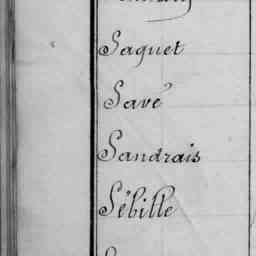 Saquet
Savé
Sandrais
Sébille